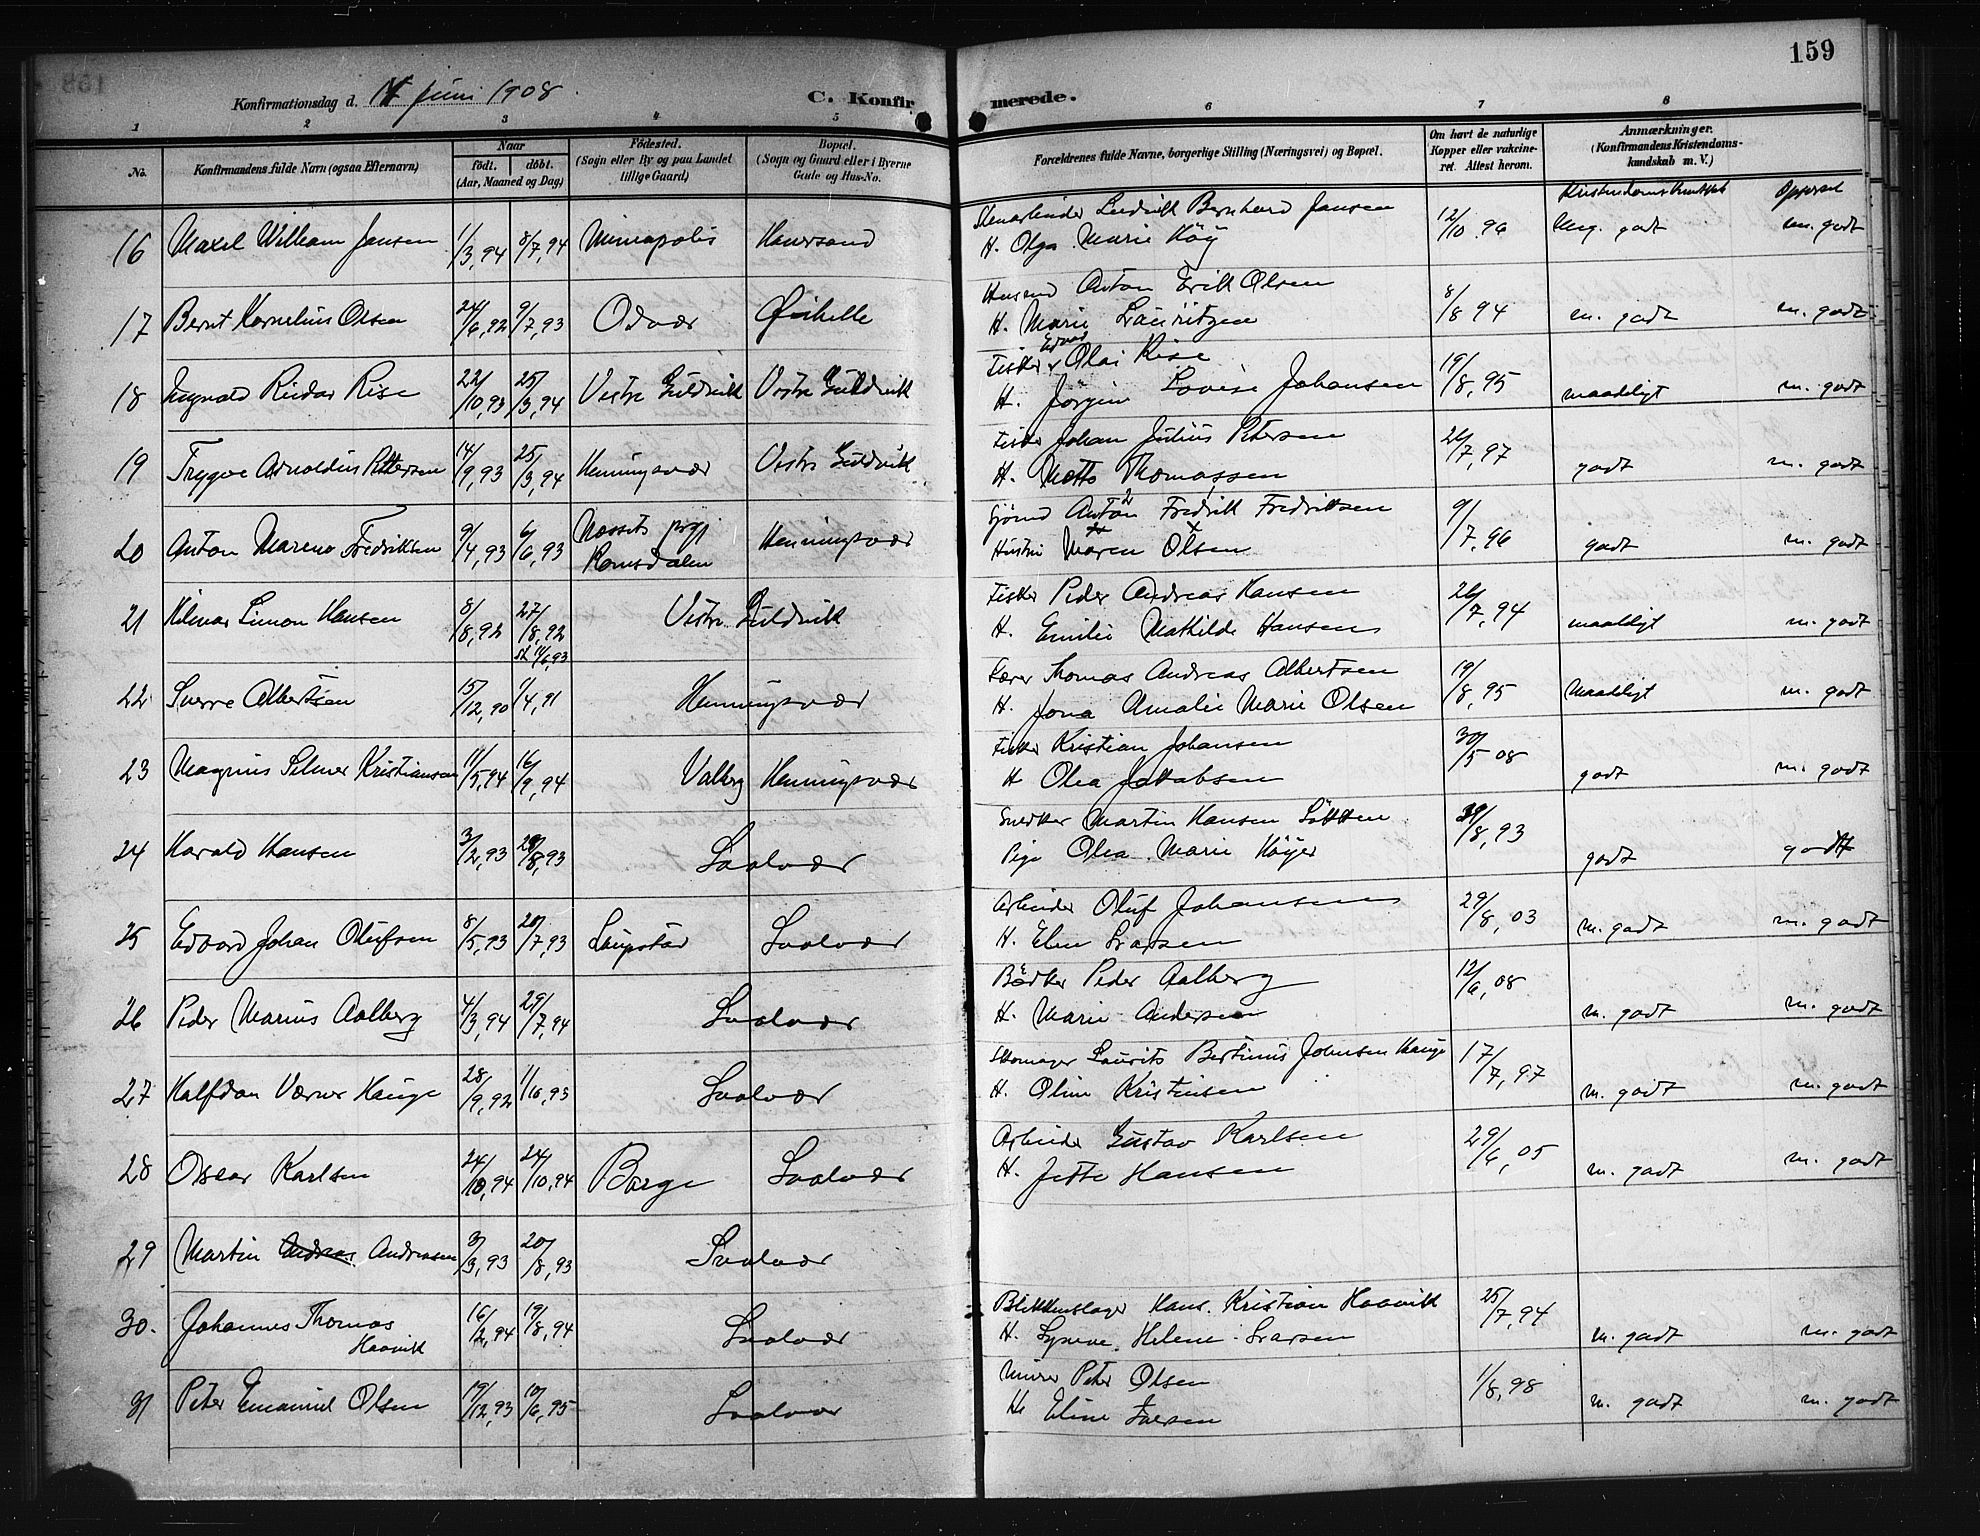 159
Konfirmationsdag d. 14 juni 1908. C. Konfirmerede.
1 2 3 4 5 6 7 8
No. Konfirmandens fulde Navn (ogsaa Efternavn) Naar født. døbt. (Aar, Maaned og Dag) Fødested. (Sogn eller By og paa Landet tillige Gaard) Bopæl. (Sogn og Gaard eller i Byerne Gade og Hus-No. Forældrenes fulde Navne, borgerlige Stilling (Næringsvei) og Bopæl. Om havt de naturlige Kopper eller vakcineret. Attest herom. Anmærkninger. (Konfirmandens Kristendomskundskab m. V.)
Kristendomskundskab Opførsel
16 Maxel William Jansen 1/3,94 8/7,94 Mineapolis Henersand Stenarbeider Ludvik Bernhard Jansen 12/10 96 Meg. godt m. godt
H. Olga Marie Höy
17 Bernt Kornelius Olsen 24/6,92 9/7,93 Odvær Husmd Anton Erik Olsen 8/8 94 m. godt m. godt
H. Marie Lauritzen
18 Ingvald Reidar Rise 22/10,93 25/3,94 Vestre Guldvik Vestre Guldvik Fisker Edvard Olai Rise 19/8,95 maadeligt m. godt
H. Jørgine Lovise Johansen
19 Trygve Arnoldius Pettersen 14/9,93 25/3,94 Henningsvær Vestre Guldvik Fisker Johan Julius Petersen 26/7,97 godt m. godt
H. Motto Thomassen
20 Anton Mareno Fredriksen 9/4,93 6/6,93 Næssets prgj Romsdalen Henningsvær Sjømd Anton Fredrik Fredriksen 9/7,96 godt m. godt
Hustru Maren Olsen
21 Hilmar Simon Hansen 8/8,92 27/8,92 st 11/6,93 Vestre Guldvik Fisker Peder Andreas Hansen 26/7,94 maadeligt m. godt
H. Emilie Mathilde Hansen
22 Sverre Albertsen 15/12,90 1/4,91 Henningsvær Thomas Andreas Albertsen 19/8,95 Maadeligt m. godt
H. Jona Amalie Marie Olsen
23 Magnus Selmer Kristiansen 11/5,94 16/9,94 Valberg Henningsvær Fisker Kristian Johansen 30/5 08 godt m. godt
H Olea Jakobsen
24 Harald Hansen 3/2,93 20/8,93 Svolvær Snedker Martin Hansen Løkken 31/8,93 godt godt
Pige Olea Marie Höyer
25 Edvard Johan Olufsen 8/5,93 20/7,93 Laupstad Svolvær Arbeider Oluf Johansen 29/8,03 m. godt m. godt
H. Eline Larsen
26 Peder Marius Aalberg 4/3,94 29/7,94 Svolvær Bødker Peder Aalberg 12/6,08 m. godt m. godt
H. Marie Andersen
27 Halfdan Værner Hauge 28/9,92 1/10,93 Svolvær Skomager Laurits Bertinus Johnsen Hauge 17/7,97 m. godt m. godt
H. Oline Kristensen
28 Oscar Karlsen 24/10,94 24/10,94 Borge Svolvær Arbeider Gustav Karlsen 29/6,05 m. godt m. godt
H. Jette Hansen
29 Martin Andreas Andreasen 3/3,93 20/8,93 Svolvær
30. Johannes Thomas Haavik 16/2,94 19/8,94 Svolvær Blikkenslager Hans. Kristian Haavik 25/7,94 m. godt m. godt
H. Synnve Helene Larsen
31 Peter Emanuel Olsen 19/12,93 10/6,95 Svolvær Murer Peter Olsen 1/8,98 m. godt m. godt
H. Eline Larsen